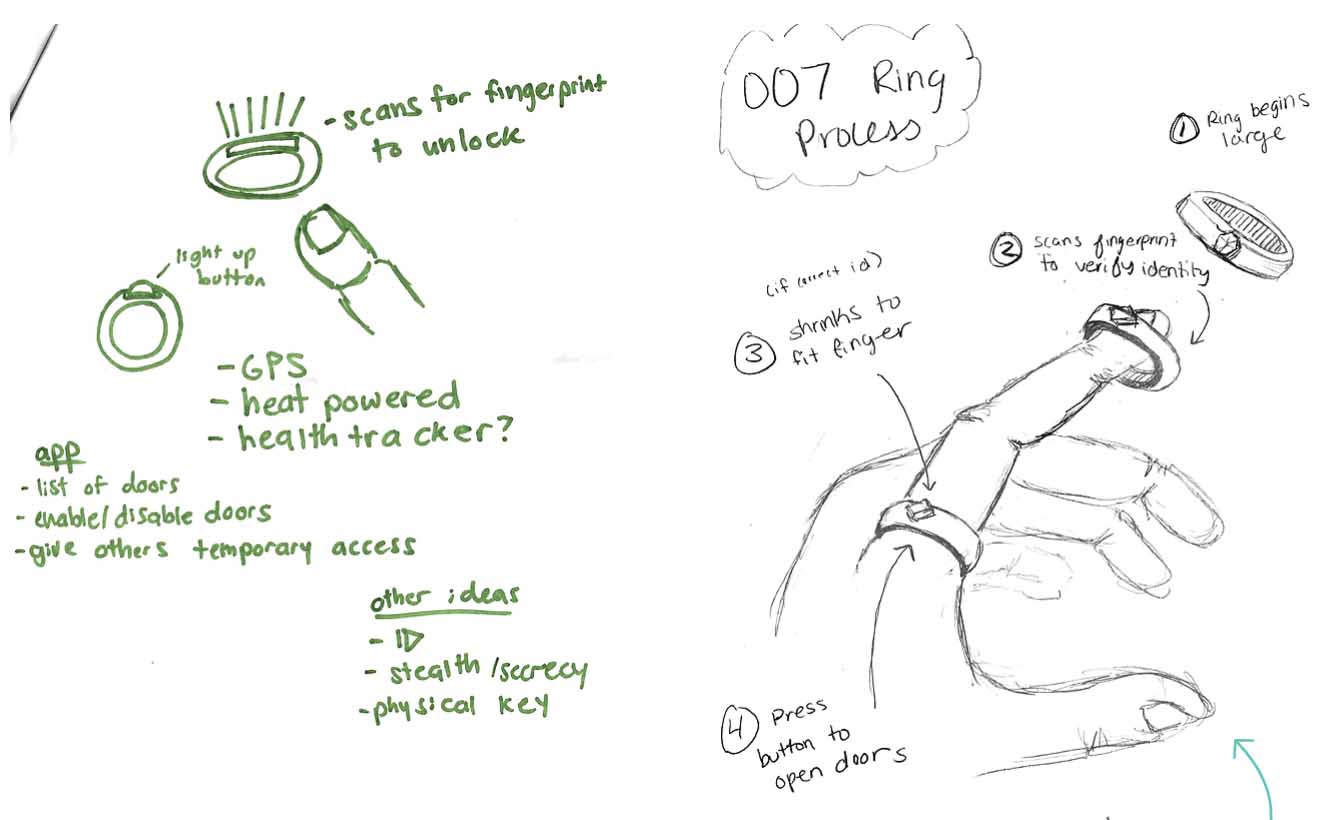 - scans for fingerprint
to unlock
light up
button
- GPS
- heat powered
- health tracker?
app
- list of doors
- enable/disable doors
- give others temporary access
other ideas
- ID
- stealth/secrecy
- physical key
007 Ring
Process
1 Ring begins
large
2 scans fingerprint
to verify identity
(if correct id)
3 shrinks to
fit finger
4 Press
button to
open doors